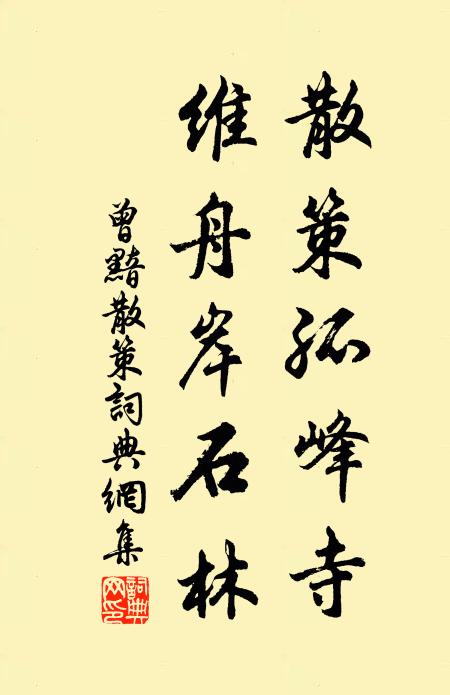 散策孤峰寺
維舟岸石林
曾黯散策詞典網集
詞典网印